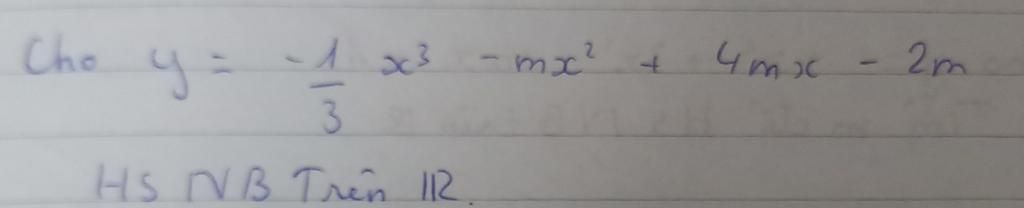 Cho y = -1/3 x³ - mx² + 4mx - 2m
HS NB Trên IR.